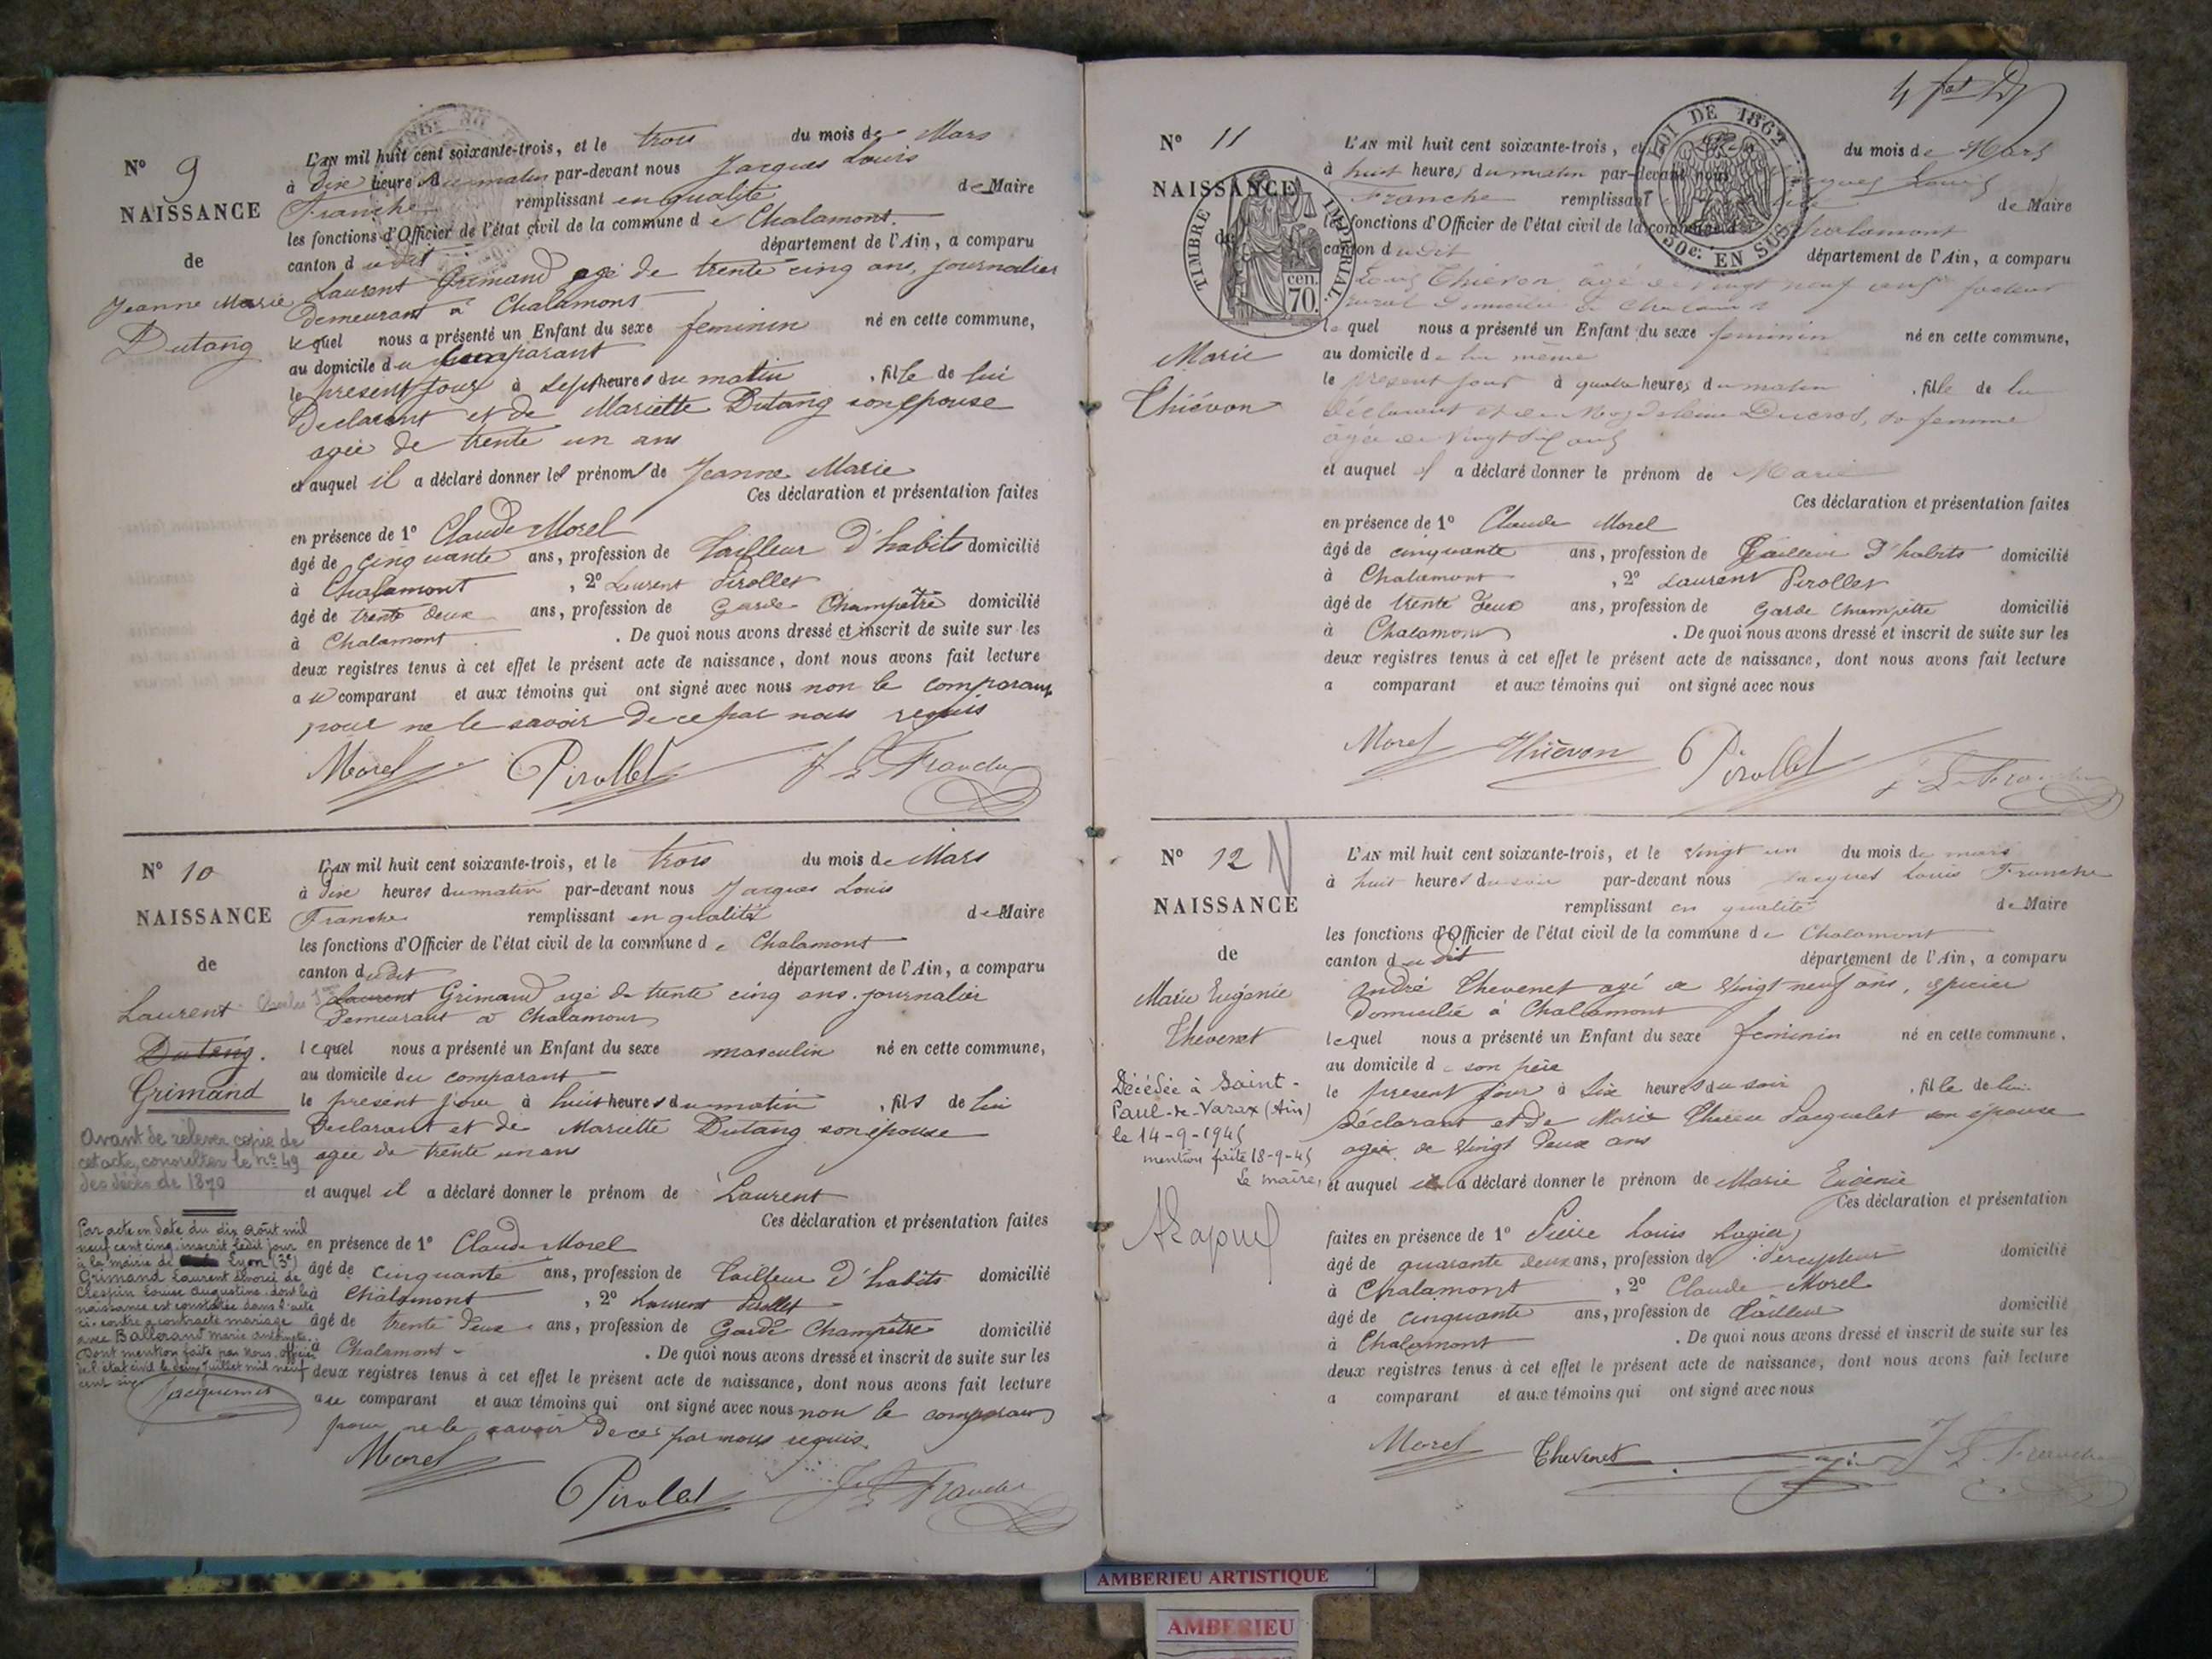 N° 9
NAISSANCE
de
Jeanne Marie
Dutang
L'AN mil huit cent soixante-trois, et le trois du mois de Mars
à dix heure du matin par-devant nous Jacques Louis
Franche remplissant en qualité de Maire
les fonctions d'Officier de l'état civil de la commune de Chalamont
canton dudit département de l'Ain, a comparu
Laurent Grimand agé de trente cinq ans, journalier
demeurant à Chalamont
lequel nous a présenté un Enfant du sexe feminin né en cette commune,
au domicile du comparant
le présent jour à sept heures du matin , fille de lui
Declarant et de Mariette Dutang son épouse
agée de trente un ans
et auquel il a déclaré donner les prénoms de Jeanne Marie
Ces déclaration et présentation faites
en présence de 1° Claude Morel
âgé de cinquante ans, profession de Tailleur d'habits domicilié
à Chalamont , 2° Laurent Pirollet
âgé de trente deux ans, profession de Garde Champêtre domicilié
à Chalamont . De quoi nous avons dressé et inscrit de suite sur les
deux registres tenus à cet effet le présent acte de naissance, dont nous avons fait lecture
au comparant et aux témoins qui ont signé avec nous non le comparant
pour ne le savoir de ce par nous requis
Morel Pirollet J L Franche
N° 10
NAISSANCE
de
Laurent
Dutang.
Grimand
Avant de relever copie de
cet acte, consulter le n° 49
des décès de 1870
Par acte en date du dix août mil
neuf cent cinq inscrit ledit jour
à la mairie de Lyon (3e)
Grimand Laurent divorcé de
Louise Augustine dont la
naissance est constatée dans l'acte
ci-contre a contracté mariage
avec Ballorand Marie
Dont mention faite par nous officier
de l'état civil le deux Juillet mil neuf
cent
Jacquemet
L'AN mil huit cent soixante-trois, et le trois du mois de Mars
à dix heures du matin par-devant nous Jacques Louis
Franche remplissant en qualité de Maire
les fonctions d'Officier de l'état civil de la commune de Chalamont
canton dudit département de l'Ain, a comparu
Laurent Grimand agé de trente cinq ans journalier
Demeurant à Chalamont
lequel nous a présenté un Enfant du sexe masculin né en cette commune,
au domicile du comparant
le présent jour à huit heures du matin , fils de lui
Declarant et de Mariette Dutang son épouse
agée de trente un ans
et auquel il a déclaré donner le prénom de Laurent
Ces déclaration et présentation faites
en présence de 1° Claude Morel
âgé de cinquante ans, profession de Tailleur d'habits domicilié
à Chalamont , 2° Laurent Pirollet
âgé de trente deux ans, profession de Garde Champêtre domicilié
à Chalamont . De quoi nous avons dressé et inscrit de suite sur les
deux registres tenus à cet effet le présent acte de naissance, dont nous avons fait lecture
au comparant et aux témoins qui ont signé avec nous non le comparant
pour ne le savoir de ce par nous requis.
Morel
Pirollet J L Franche
N° 11
NAISSANCE
de
Marie
Thiévon
TIMBRE IMPÉRIAL
cen.
70.
LOI DE 1862
50c. EN SUS
L'AN mil huit cent soixante-trois, et du mois de Mars
à huit heures du matin par-devant nous Jacques Louis
Franche remplissant de Maire
les fonctions d'Officier de l'état civil de la commune Chalamont
canton dudit département de l'Ain, a comparu
Louis Thiévon, âgé de vingt neuf ans facteur
rural domicilié à Chalamont
lequel nous a présenté un Enfant du sexe feminin né en cette commune,
au domicile de lui même
le présent jour à quatre heures du matin , fille de lui
déclarant et de Magdeleine Ducros, sa femme
âgée de vingt six ans
et auquel il a déclaré donner le prénom de Marie
Ces déclaration et présentation faites
en présence de 1° Claude Morel
âgé de cinquante ans, profession de Tailleur d'habits domicilié
à Chalamont , 2° Laurent Pirollet
âgé de trente deux ans, profession de Garde Champêtre domicilié
à Chalamont . De quoi nous avons dressé et inscrit de suite sur les
deux registres tenus à cet effet le présent acte de naissance, dont nous avons fait lecture
a comparant et aux témoins qui ont signé avec nous
Morel Thiévon Pirollet J L Franche
N° 12 N
NAISSANCE
de
Marie Eugénie
Thevenet
Décédée à Saint-
Paul-de-Varax (Ain)
le 14-9-1945
mention faite 18-9-45
Le maire,
L'AN mil huit cent soixante-trois, et le vingt un du mois de mars
à huit heures du soir par-devant nous Jacques Louis Franche
remplissant en qualité de Maire
les fonctions d'Officier de l'état civil de la commune de Chalamont
canton dudit département de l'Ain, a comparu
André Thevenet agé de vingt neuf ans, épicier
Domicilié à Chalamont
lequel nous a présenté un Enfant du sexe feminin né en cette commune,
au domicile de son père
le présent jour à six heures du soir , fille de lui
déclarant et de Marie Thérèse Jacquelet son épouse
agée de vingt deux ans
et auquel il a déclaré donner le prénom de Marie Eugénie
Ces déclaration et présentation
faites en présence de 1° Pierre Louis
âgé de quarante deux ans, profession de percepteur domicilié
à Chalamont , 2° Claude Morel
âgé de cinquante ans, profession de Tailleur domicilié
à Chalamont . De quoi nous avons dressé et inscrit de suite sur les
deux registres tenus à cet effet le présent acte de naissance, dont nous avons fait lecture
a comparant et aux témoins qui ont signé avec nous
Morel Thevenet J L Franche
AMBERIEU ARTISTIQUE
AMBERIEU